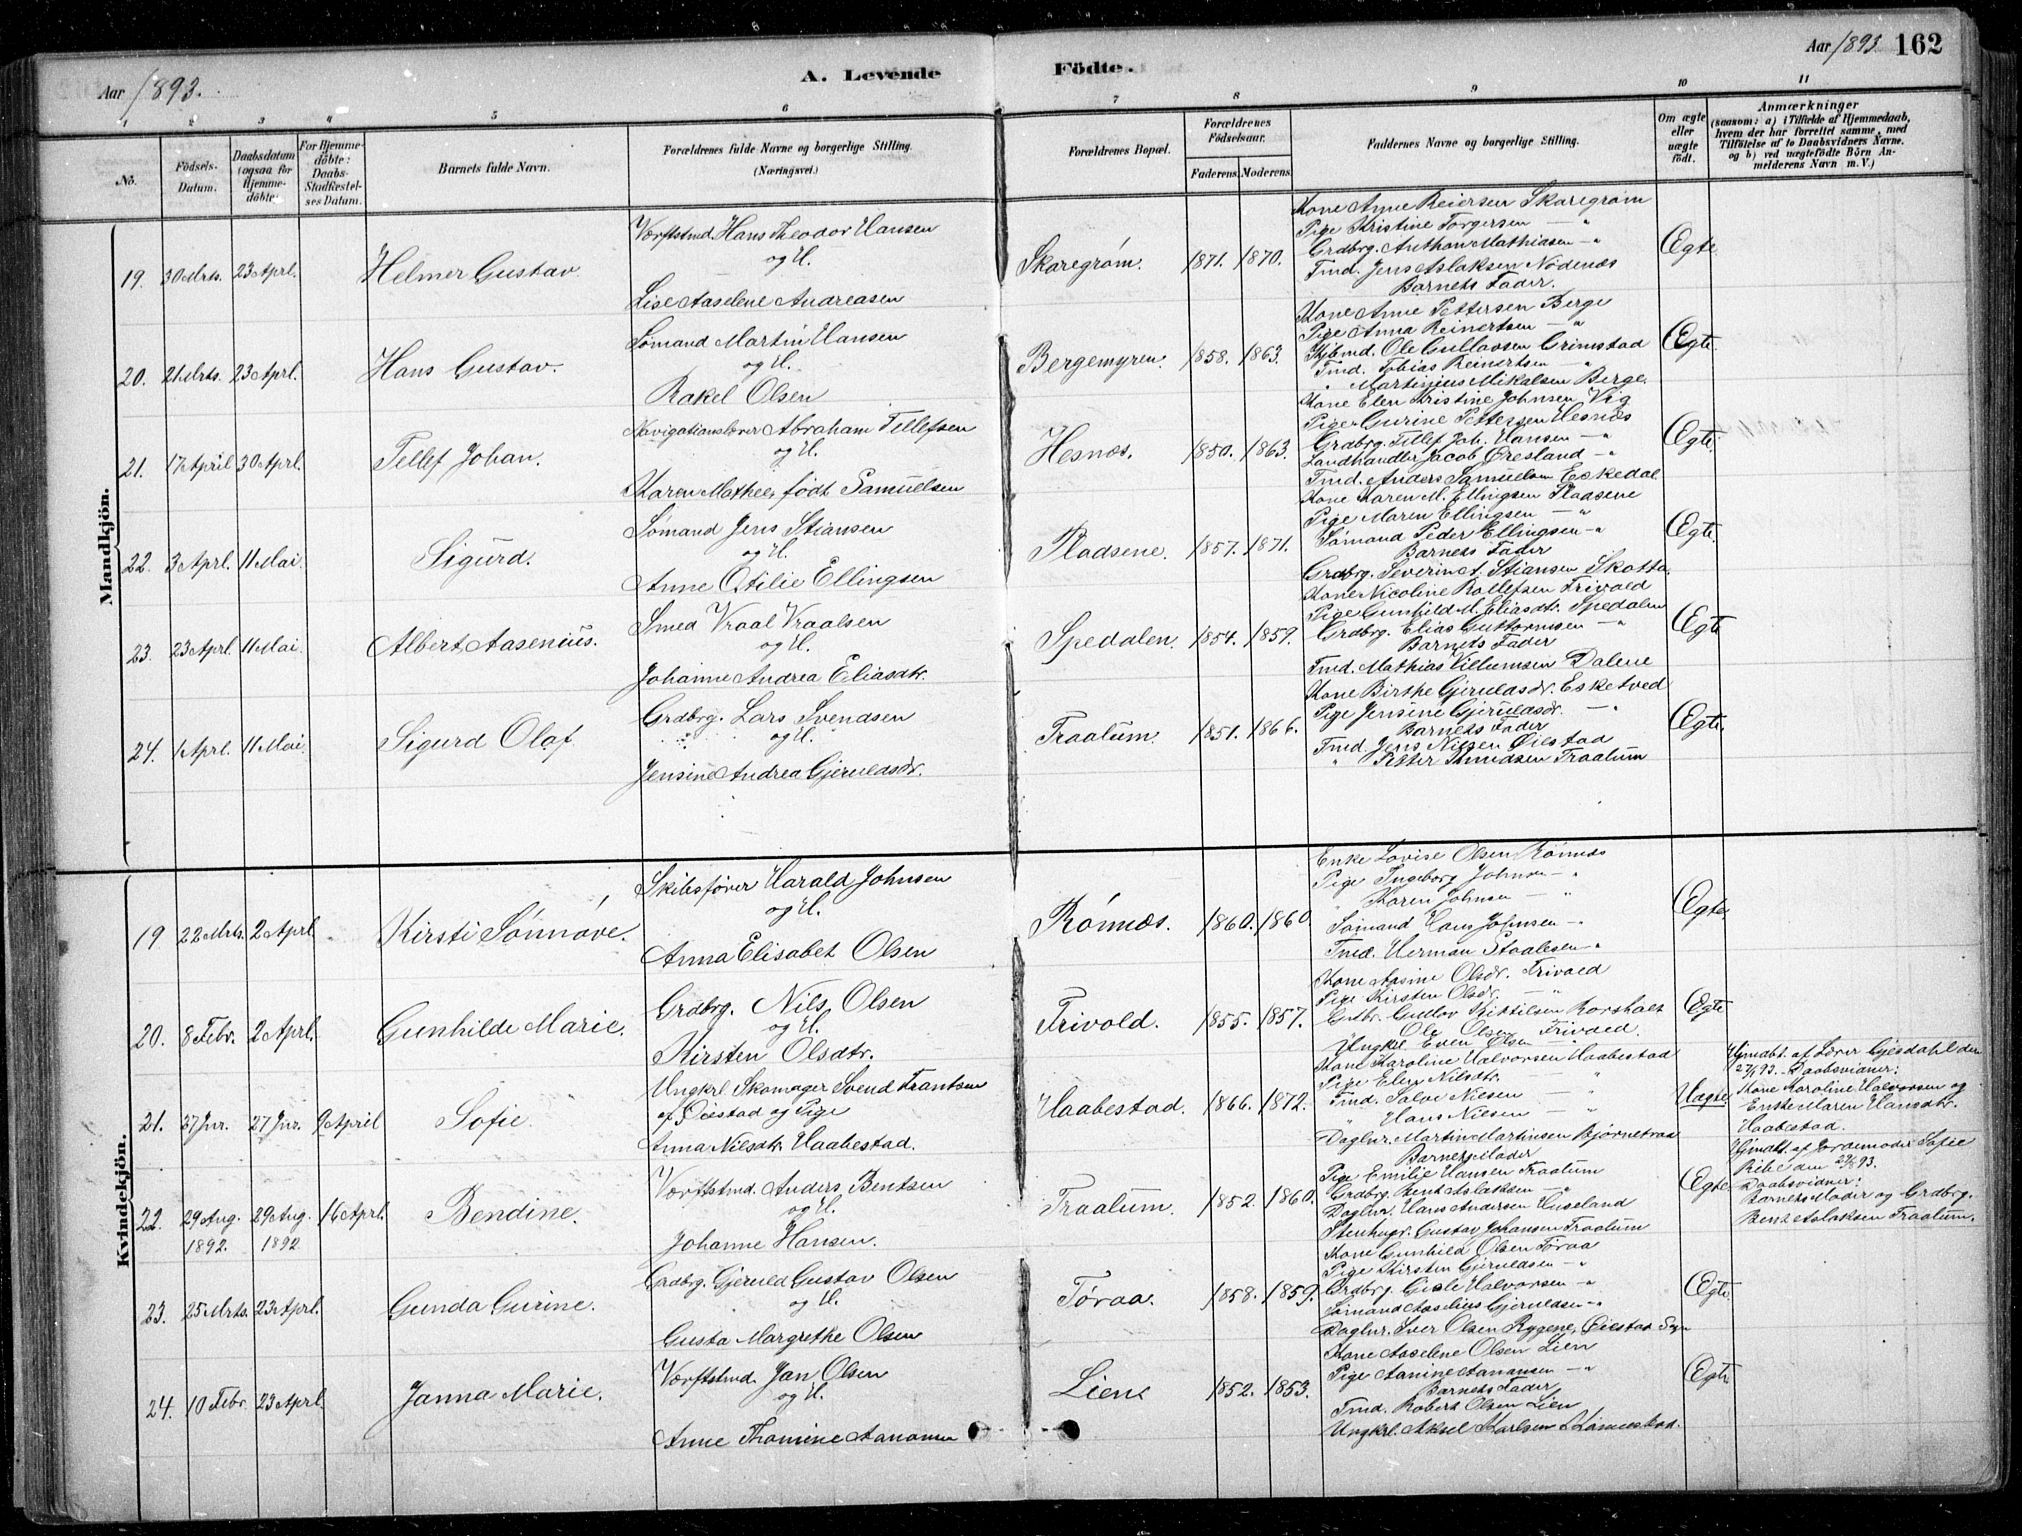 Aar 1893.
A. Levende
Födte.
Aar 1893 162
1 2 3 4 5 6 7 8 9 10 11
No.
Födsels-Datum.
Daabsdatum (ogsaa for Hjemmedöbte.
For Hjemmedöbte: Daabs-Stadfæstelses Datum.
Barnets fulde Navn.
Forældrenes fulde Navne og borgerlige Stilling. (Næringsvei.)
Forældrenes Bopæl.
Forældrenes Födselsaar. Faderens. Moderens.
Faddernes Navne og borgerlige Stilling.
Om ægte eller uægte födt.
Anmærkninger (saasom: a) i Tilfælde af Hjemmedaab, hvem der har forrettet samme, med Tilföielse af to Daabsvidners Navne. og b) ved uægtefödte Börn Anmelderens Navn m. V.)
Mandkjön.
19. 30 Mrts. 23 Aprl. Helmer Gustav.
Værftstmd. Hans Theodor Hansen
og H.
Lise Aaselene Andreasen
Skaregrøm. 1871. 1870.
Kone Anne Reiersen Skaregrøm
Pige Kristine Torgersen — "
Grdbrg. Anthon Mathiasen — "
Tmd. Jens Aslaksen Nødenæs
Barnets Fader.
Ægte
20. 21 Mrts. 23 Aprl. Hans Gustav.
Sømand Martin Hansen
og H.
Rakel Olsen
Bergemyren. 1858. 1863.
Kone Anne Pettersen Berge
Pige Anna Reinertsen — "
Skibmd. Ole Gullovsen Grimstad
Tmd. Tobias Reinertsen "
" Martinius Mikalsen Berge.
Ægte.
21. 17 April 30 Aprl. Tellef Johan.
Navigationslærer Abraham Tellefsen
og H.
Karen Mathee, født Samuelsen
Hesnæs. 1850. 1863.
Kone Elen Kristine Johnsen Vig
Pige Gurine Pettersen Hesnæs
Grdbrg. Tellef Joh. Hansen — "
Landhandler Jacob Øresland — "
Tmd. Anders Samuelsen Eskedal
Ægte.
22. 3 Aprl. 11 Mai Sigurd.
Sømand Jens Stiansen
og H.
Anne Otilie Ellingsen
Pladsene. 1857. 1871.
Kone Karen M. Ellingsen Pladsene
Pige Maren Ellingsen — "
Sømand Peder Ellingsen — "
Barnets Fader
Grdbrg. Severin A. Stiansen Skotta.
Ægte.
23. 23 Aprl. 11 Mai. Albert Aasenius.
Smed Vraal Vraalsen
og H.
Johanne Andrea Eliasdtr.
Spedalen. 1854. 1859.
Kone Nicoline Rollefsen Frivold
Pige Gunhild M. Eliasdtr. Spedalen
Grdbrg. Elias Guttormsen — "
Barnets Fader
Tmd. Mathias Villumsen Dalene
Ægte
24. 1 Aprl. 11 Mai. Sigurd Olaf
Grdbrg. Lars Svendsen
og H.
Jensine Andrea Gjeruldsdr.
Traalum. 1851. 1866.
Kone Birthe Gjeruldsdr. Esketved
Pige Jensine Gjeruldsdr. — "
Barnets Fader
Tmd. Jens Nilsen Øiestad
" Petter Knudsen Traalum
Ægte.
Kvindekjön.
19 22 Mrts. 2 Aprl. Kirsti Sønnøve.
Skibsfører Harald Johnsen
og H.
Anna Elisabet Olsen
Rónnæs. 1860. 1860.
Enke Lovise Olsen Rónnæs
Pige Ingeborg Johnsen — "
" Karen Johnsen — "
Sømand Hans Johnsen — "
Tmd. Herman Staalesen — "
Ægte
20. 8 Febr. 2 Aprl. Gunhilde Marie.
Grdbrg. Nils Olsen
og H.
Kirsten Olsdtr.
Frivold. 1855. 1857.
Kone Aasine Olsdr. Frivold
Pige Kirsten Olsdr. — "
Grdbr. Gullov Kittilsen Rorsholt
" Ole Olsen Frivold.
Ungkrl. Even Olsen "
Ægte
21. 27 Jnr. 27 Jnr. 9 April Sofie.
Ungkrl. Skomager Svend Frantsen
af Øiestad og Pige
Anna Nilsdtr. Haabestad.
Haabestad. 1866. 1872.
Kone Karoline Halvorsen Haabestad
Pige Elen Nilsdtr. — "
Tmd. Salve Nilsen — "
" Hans Nilsen — "
Daglnr. Martin Martinsen Bjørnetraa
Barnets Moder
Uægte
Hjmdbt. af Lærer Gjesdahl den
27/1 93. Daabsvidner:
Kone Karoline Halvorsen og
Enke Maren Hansdtr.
Haabestad.
22. 29 Aug. 1892. 29 Aug. 1892 16 Aprl. Bendine.
Værftstmd. Anders Bentsen
og H.
Johanne Hansen.
Traalum. 1852. 1860.
Pige Emilie Hansen Traalum
Grdbrg. Bent Aslaksen — "
Daglnr. Hans Andersen Huseland
Stenhugr. Gustav Johansen Traalum
Ægte.
Hjmdbt. af Jordemoder Sofie
Ribe den 29/8 93.
Daabsvidner:
Barnets Moder og Grdbrg.
Bent Aslaksen Traalum.
23. 25 Mrts. 23 Aprl. Gunda Gurine.
Grdbrg. Gjeruld Gustav Olsen
og H.
Gusta Margrethe Olsen
Tøraa. 1858. 1859.
Kone Gunhild Olsen Tøraa
Pige Kirsten Gjeruldsen — "
Grdbrg. Gisle Halvorsen — "
Sømand Aaselius Gjeruldsen — "
Daglnr. Iver Olsen Rygene, Øiestad Sgn
Ægte.
24. 10 Febr. 23 Aprl. Janna Marie.
Værftstmd. Jan Olsen
og H.
Anne Thomine Aanonsen
Liene 1852. 1853.
Kone Aaselene Olsen Lien
Pige Aanine Aanonsen — "
Barnets Fader
Tmd. Robert Olsen Lien
Ungkrl. Aksel Karlsen
Ægte